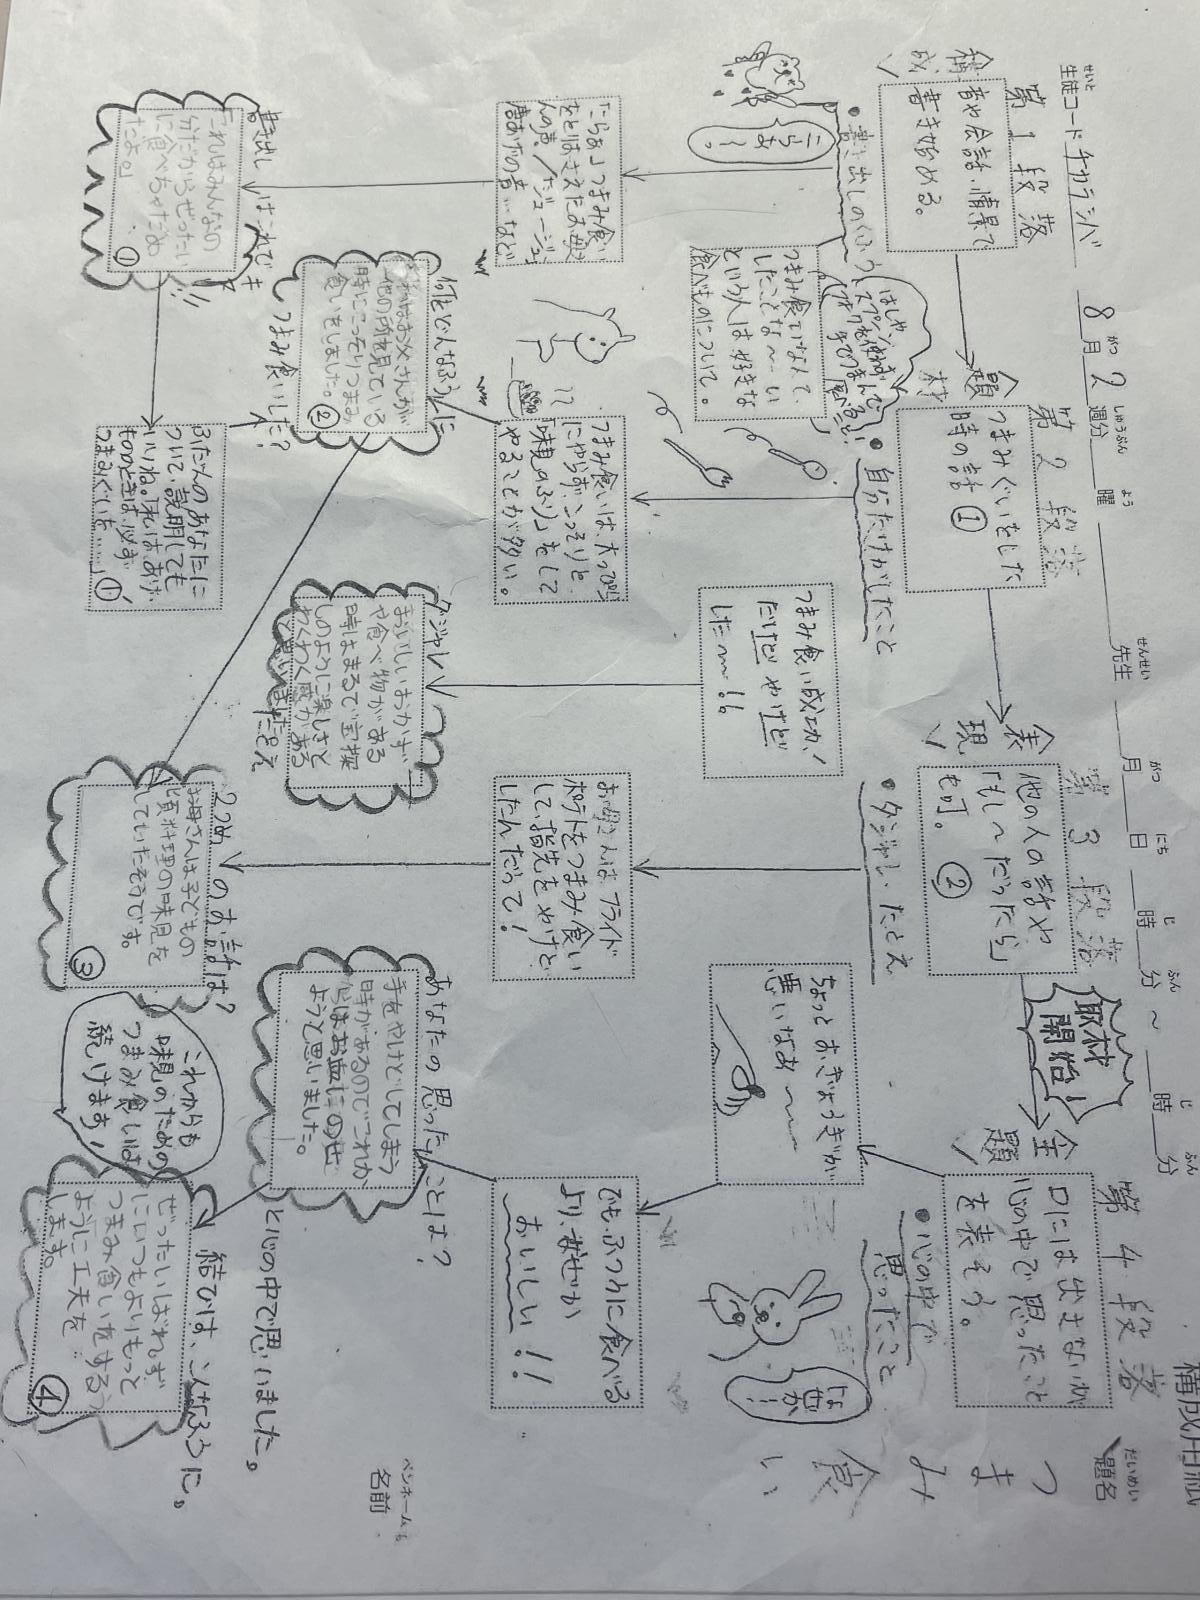 構成用紙
だいめい
題名
つまみ食い
ペンネームも
名前
せいと
生徒コード チカラシバ
8月2週分
がつ
しゅうぶん
よう
曜
せんせい
先生
がつ
月
にち
日
じ
時
ふん
分
～
じ
時
ふん
分
取材
開始!
構成
第1段落
音や会話、情景で
書き始める。
・書き出しのくふう
うらぁ
～。
はしや
スプーン使わず
手でつまんで
つまみ食いなんて、
したことな～い
という人は好きな
食べものについて。
「こらぁ」つまみ食い
をとばさえたお母
さんの声。/「ジュージュー
唐あげの音…など
書き出しはこれでキ
「これはみんなの
分だからぜったい
に食べちゃだめ
だよ。」
①
ふだんのあなたに
ついて、説明しても
いいね。「私は、あげ
もののときは、必ず
つまみぐいを……」①
題材
第2段落
つまみぐいをした
時の話①
・自分だけがしたこと
つまみ食いは、大っぴら
にやらず、こっそりと
「味見のふり」をして
やることが多い。
何をどんなふうに
つまみ食いした?
ぼくはお父さんが
他の所を見ている
時にこっそりつまみ
食いをしました。②
つまみ食い成功、
だけどやけど
した～!!
ダジャレ
おいしいおかず
や食べ物がある
時はまるで宝探
しのように楽しさと
わくわく感がある
たとえ
表現
第3段落
他の人の話や
「もし～だったら」
も可。②
・ダジャレ、たとえ
お母さんは、フライド
ポテトをつまみ食い
して、指先をやけど
したんだって!
2つめのお話は?
お母さんは子どもの
頃料理の味見を
していたそうです。
③
主題
第4段落
口には出さないが
心の中で思ったこと
を表そう。
・心の中で
思ったこと
ちょっとおぎょうぎが
悪いなあ～
でもふつうに食べる
より、なぜか
おいしい!!
なぜか
…!
あなたの思ったことは?
手をやけどしてしまう
時があるのでこれか
らはお皿にのせ
ようと思いました。
と心の中で思いました。
これからも
味見のための
つまみ食いは
続けます!
結びは、こんなふうに。
ぜったいばれず
にいつもよりもっと
つまみ食いをする
ように工夫を
します。
④